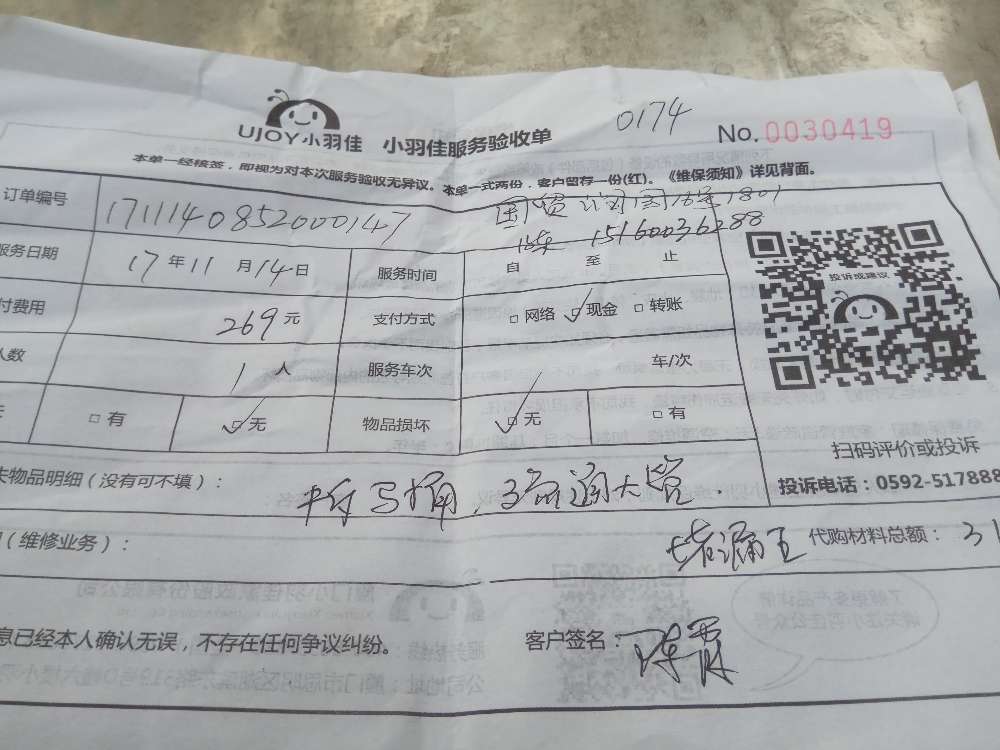 UJOY小羽佳 小羽佳服务验收单 0174 No. 0030419
本单一经核签，即视为对本次服务验收无异议。本单一式两份，客户留存一份(红)。《维保须知》详见背面。
订单编号 1711140852000147 国贸 1801
15160036288
服务日期 17年11月14日 服务时间 自 至 止
付费用 269元 支付方式 □网络 ☑现金 □转账
人数 1人 服务车次 车/次
□有 ☑无 物品损坏 ☑无 □有
投诉或建议
扫码评价或投诉
投诉电话：0592-517888
失物品明细（没有可不填）： 马桶，通大管.
（维修业务）： 堵漏王 代购材料总额： 31
息已经本人确认无误，不存在任何争议纠纷。 客户签名：